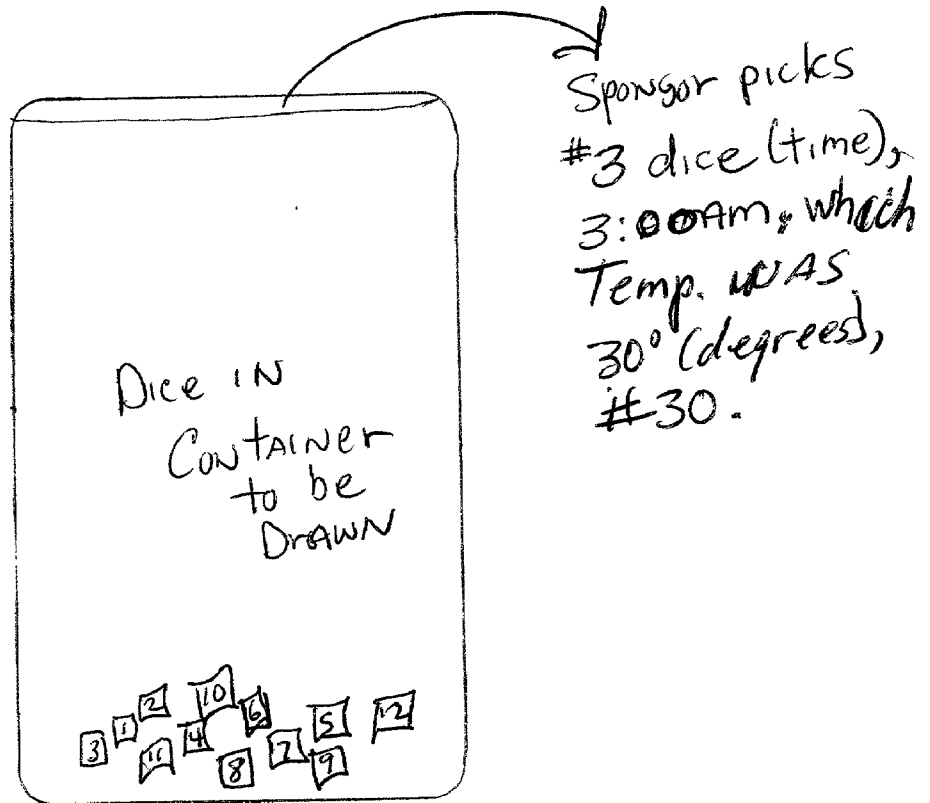 Sponsor picks
#3 dice (time),
3:00Am, which
Temp. WAS
30° (degrees),
#30.
Dice IN
Container
to be
DrAWN
10
2
6
5
12
1
4
3
11
7
8
9